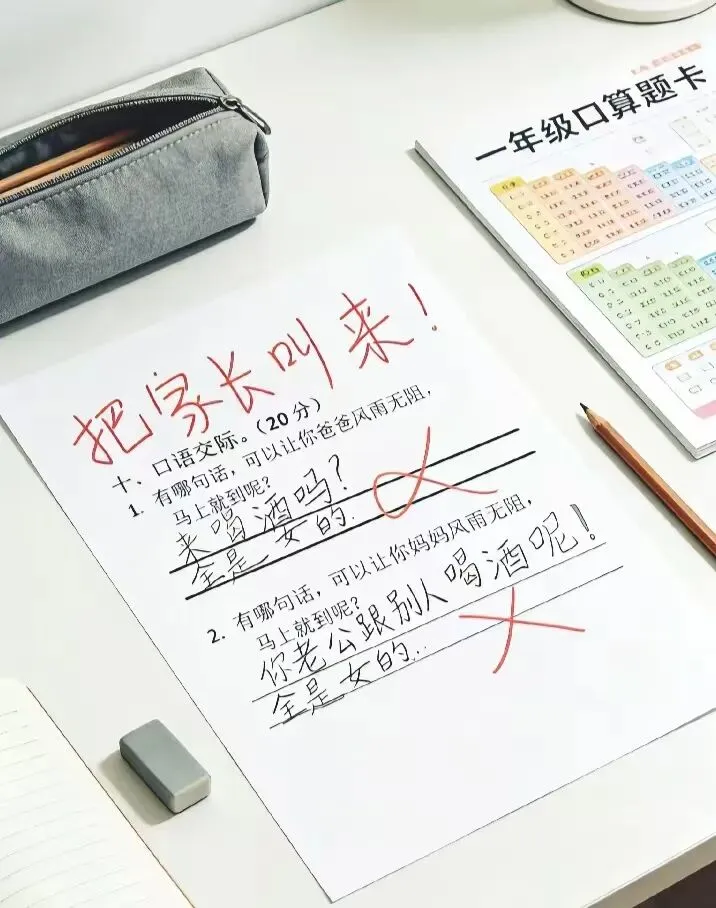 一年级口算题卡
把家长叫来!
十、口语交际。(20分)
1. 有哪句话,可以让你爸爸风雨无阻,
马上就到呢?
来喝酒吗?
全是女的.
2. 有哪句话,可以让你妈妈风雨无阻,
马上就到呢?
你老公跟别人喝酒呢!
全是女的...